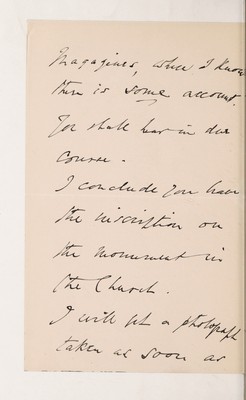 Magazines, where I know
there is some account.
You shall hear in due
course.
I conclude you have
the inscription on
the monument in
the Church.
I will get a photograph
taken as soon as